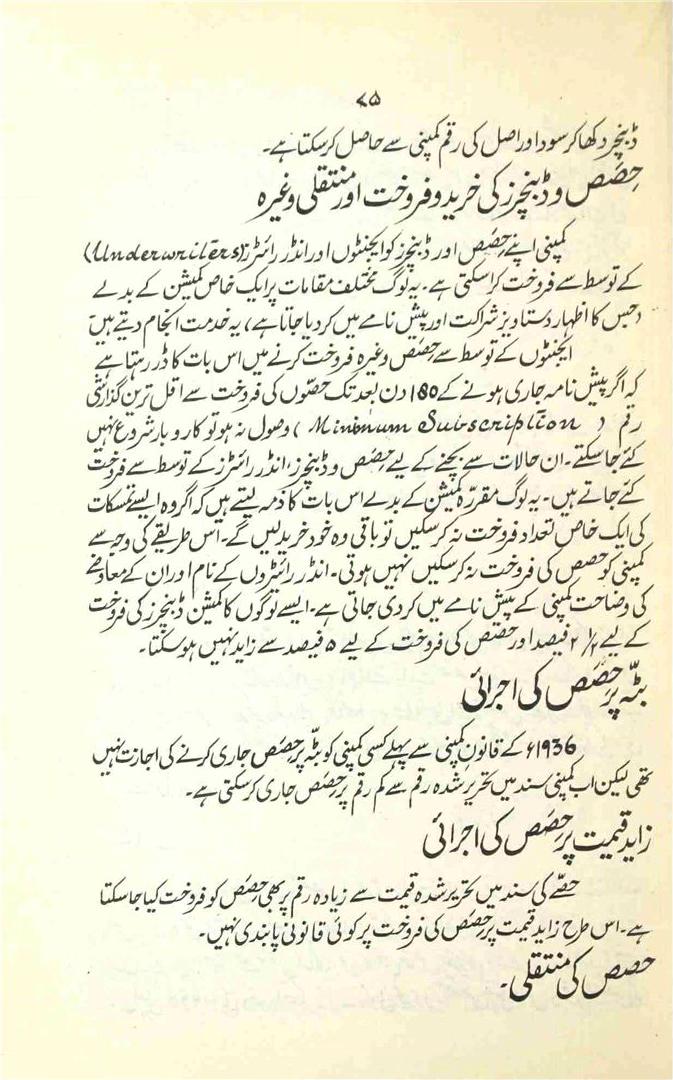 ۷۵
ڈبنچر دکھا کر سود اور اصل کی رقم کمپنی سے حاصل کر سکتا ہے۔
حِصَص و ڈبنچرز کی خرید و فروخت اور منتقلی وغیرہ
کمپنی اپنے حِصَص اور ڈبنچرز کو ایجنٹوں اور انڈر رائٹرز (Underwriters)
کے توسط سے فروخت کرا سکتی ہے۔ یہ لوگ مختلف مقامات پر ایک خاص کمیشن کے بدلے
(جس کا اظہار دستاویز شراکت اور پیش نامے میں کر دیا جاتا ہے) یہ خدمت انجام دیتے ہیں
ایجنٹوں کے توسط سے حِصَص وغیرہ فروخت کرنے میں اس بات کا ڈر رہتا ہے
کہ اگر پیش نامہ جاری ہونے کے 180 دن بعد تک حصّوں کی فروخت سے اقل ترین گذارشی
رقم (Minimum Subscription) وصول نہ ہو تو کاروبار شروع نہیں
کئے جا سکتے۔ ان حالات سے بچنے کے لیے حِصَص و ڈبنچرز، انڈر رائٹرز کے توسط سے فروخت
کئے جاتے ہیں۔ یہ لوگ مقررّہ کمیشن کے بدلے اس بات کا ذمہ لیتے ہیں کہ اگر وہ ایسے تمسکات
کی ایک خاص تعداد فروخت نہ کر سکیں تو باقی وہ خود خرید لیں گے۔ اس طریقے کی وجہ سے
کمپنی کو حصص کی فروخت نہ کر سکیں نہیں ہوتی۔ انڈر رائٹروں کے نام اور ان کے معاوضے
کی وضاحت کمپنی کے پیش نامے میں کر دی جاتی ہے۔ ایسے لوگوں کا کمیشن ڈبنچرز کی فروخت
کے لیے ۲ ۱/۲ فیصد اور حصص کی فروخت کے لیے ۵ فیصد سے زاید نہیں ہو سکتا۔
بٹّہ پر حِصَص کی اجرائی
1936ء کے قانون کمپنی سے پہلے کسی کمپنی کو بٹّہ پر حِصَص جاری کرنے کی اجازت نہیں
تھی لیکن اب کمپنی سند میں تحریر شدہ رقم سے کم رقم پر حِصَص جاری کر سکتی ہے۔
زاید قیمت پر حِصَص کی اجرائی
حصّے کی سند میں تحریر شدہ قیمت سے زیادہ رقم پر بھی حِصَص کو فروخت کیا جا سکتا
ہے۔ اس طرح زاید قیمت پر حِصَص کی فروخت پر کوئی قانونی پابندی نہیں۔
حصص کی منتقلی۔